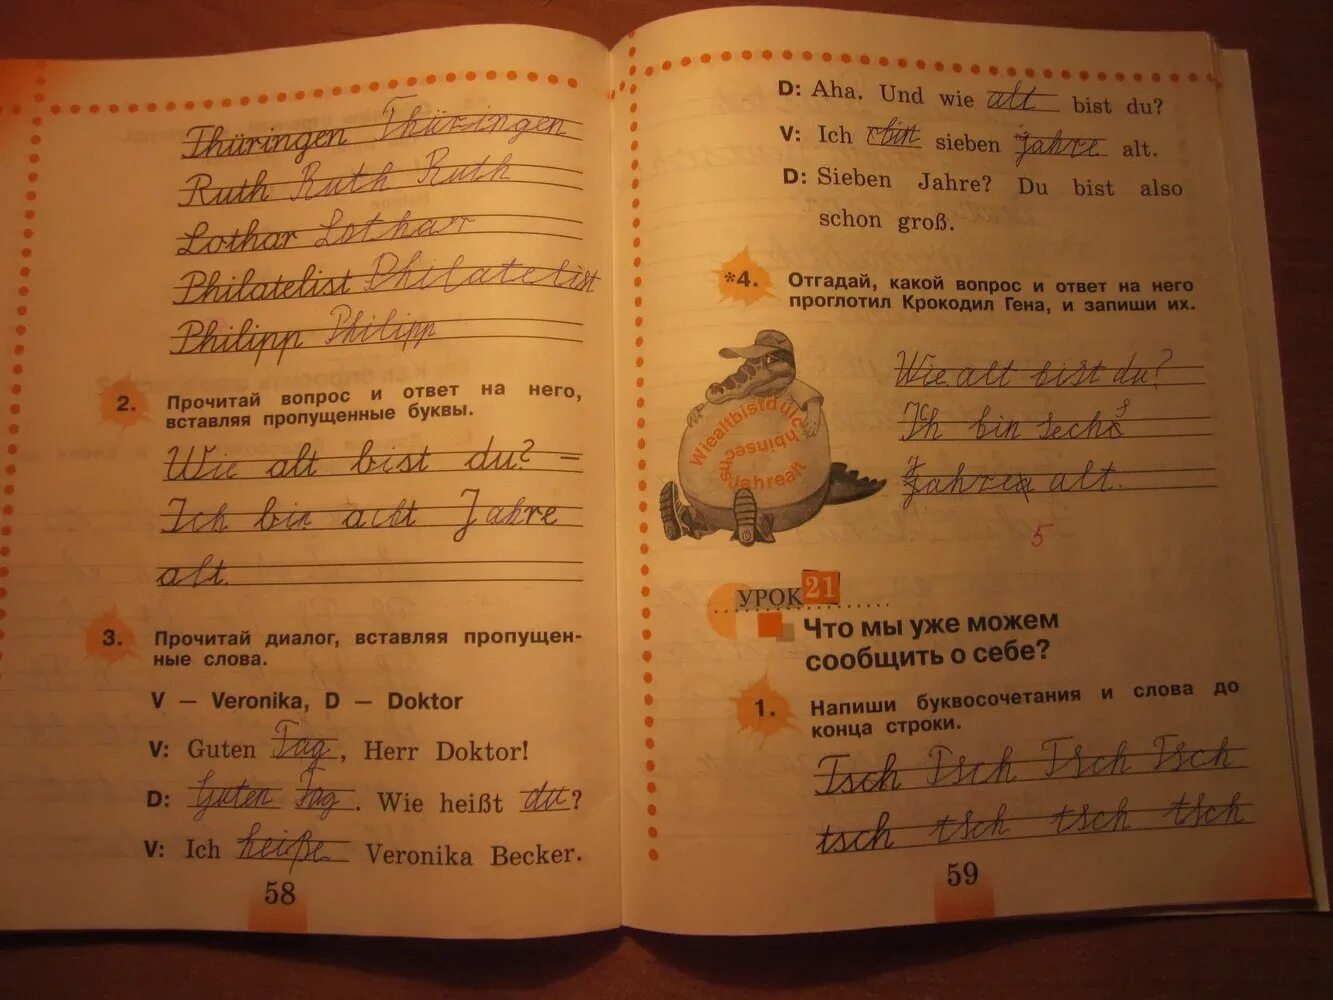 Thüringen Thüringen
Ruth Ruth Ruth
Lothar Lothar
Philatelist Philatelist
Philipp Philipp
2. Прочитай вопрос и ответ на него,
вставляя пропущенные буквы.
Wie alt bist du? –
Ich bin acht Jahre
alt.
3. Прочитай диалог, вставляя пропущен-
ные слова.
V — Veronika, D — Doktor
V: Guten Tag, Herr Doktor!
D: Guten Tag. Wie heißt du?
V: Ich heiße Veronika Becker.
58
D: Aha. Und wie alt bist du?
V: Ich bin sieben Jahre alt.
D: Sieben Jahre? Du bist also
schon groß.
*4. Отгадай, какой вопрос и ответ на него
проглотил Крокодил Гена, и запиши их.
WiealtbistduIc
hbinsec
hsJahrealt
Wie alt bist du?
Ich bin sechs
Jahre alt.
5
УРОК 21
Что мы уже можем
сообщить о себе?
1. Напиши буквосочетания и слова до
конца строки.
Tsch Tsch Tsch Tsch
tsch tsch tsch tsch
59